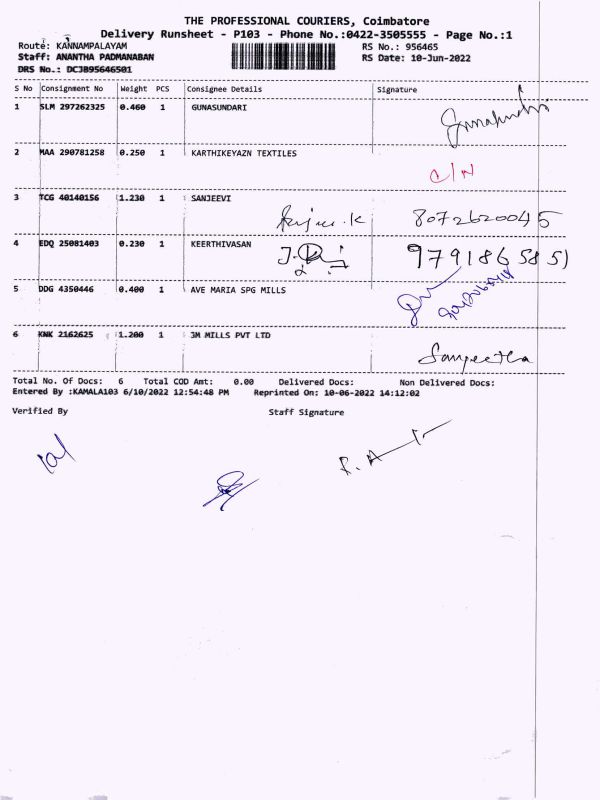 THE PROFESSIONAL COURIERS, Coimbatore
Delivery Runsheet - P103 - Phone No.:0422-3505555 - Page No.:1
Route: KANNAMPALAYAM RS No.: 956465
Staff: ANANTHA PADMANABAN RS Date: 10-Jun-2022
DRS No.: DCJB95646501
S No Consignment No Weight PCS Consignee Details Signature
1 SLM 297262325 0.460 1 GUNASUNDARI
2 MAA 290781258 0.250 1 KARTHIKEYAZN TEXTILES
C/N
3 TCG 40140156 1.230 1 SANJEEVI
8072620045
4 EDQ 25081403 0.230 1 KEERTHIVASAN
5 DDG 4350446 0.400 1 AVE MARIA SPG MILLS
6 KNK 2162625 1.200 1 JM MILLS PVT LTD
Sangeetha
Total No. Of Docs: 6 Total COD Amt: 0.00 Delivered Docs: Non Delivered Docs:
Entered By :KAMALA103 6/10/2022 12:54:48 PM Reprinted On: 10-06-2022 14:12:02
Verified By Staff Signature